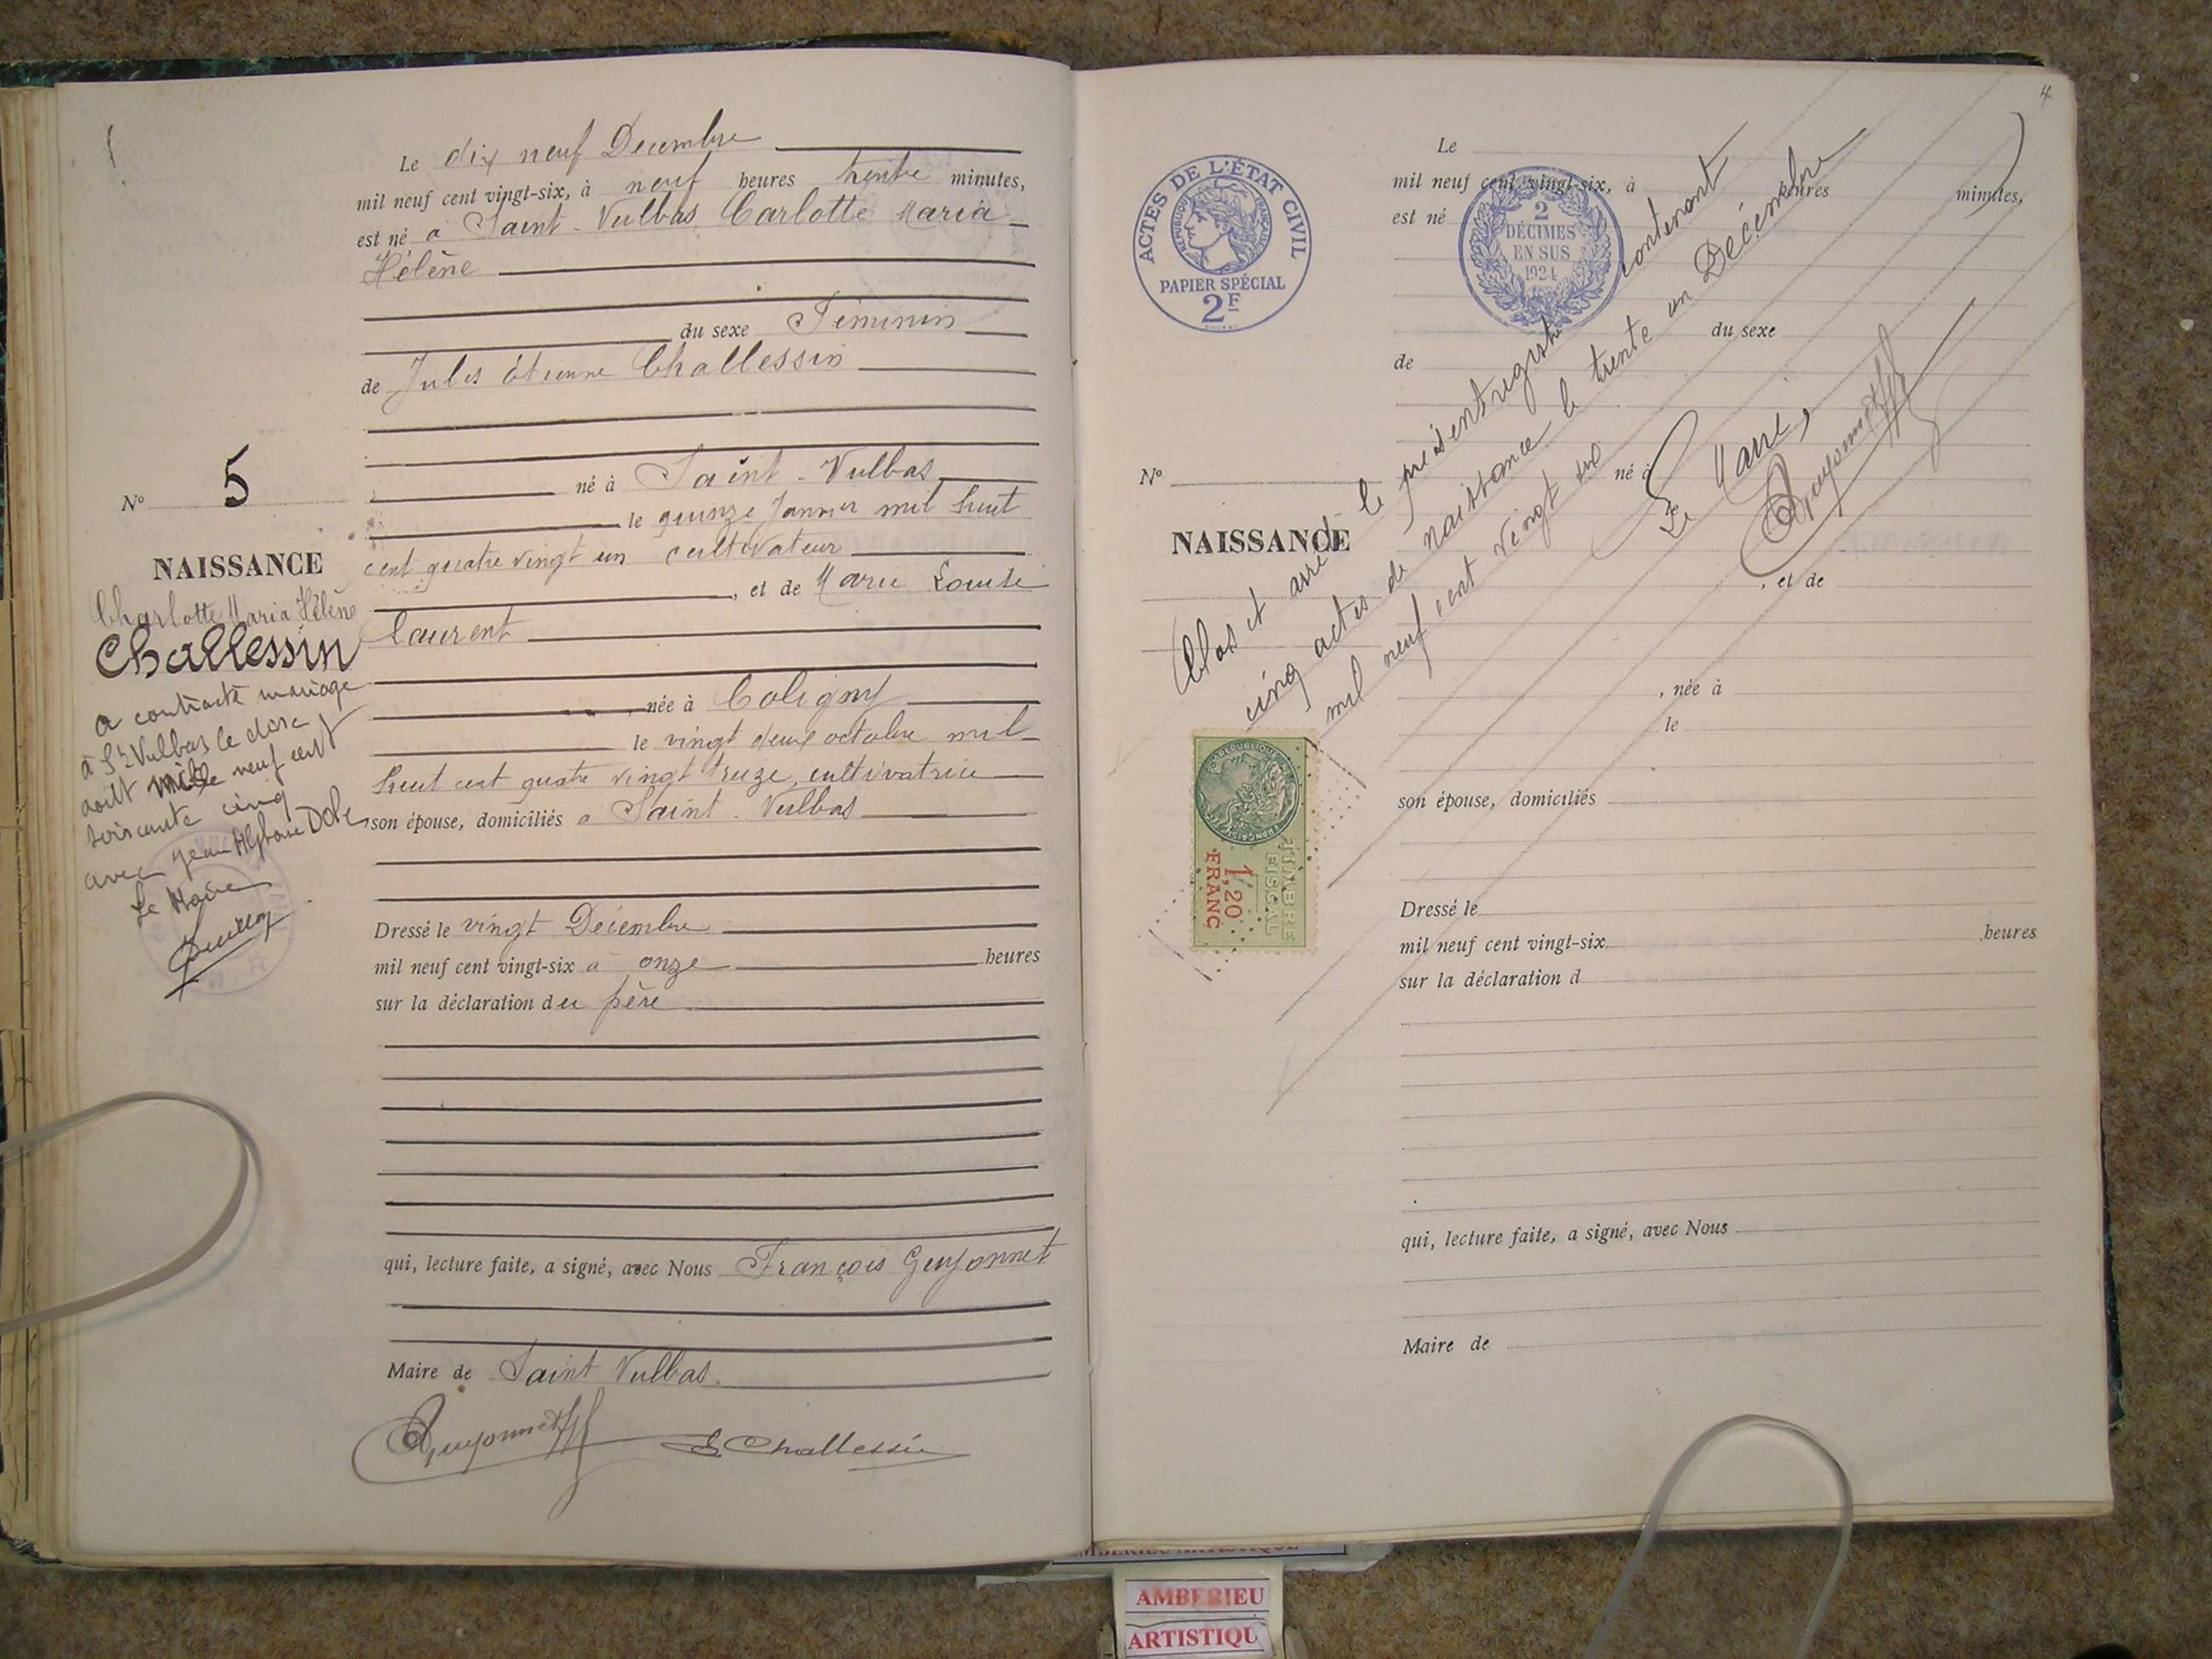 Le dix neuf Decembre
mil neuf cent vingt-six, à neuf heures trente minutes,
est né a Saint-Vulbas Carlotte Maria
Hélène
du sexe Féminin
de Jules Etienne Challessin
né à Saint-Vulbas
le quinze Janvier mil huit
cent quatre vingt un cultivateur
, et de Marie Louise
Laurent
, née à Coligny
le vingt deux octobre mil
huit cent quatre vingt treize, cultivatrice
son épouse, domiciliés a Saint-Vulbas
Dressé le vingt Décembre
mil neuf cent vingt-six à onze heures
sur la déclaration du père
qui, lecture faite, a signé, avec Nous François Guyonnet
Maire de Saint Vulbas.
Guyonnet
E Challessin
No 5
NAISSANCE
Charlotte Maria Hélène
Challessin
a contracté mariage
à St Vulbas le
août mille neuf cent
soixante cinq
avec Jean Alphonse
Le Maire
4
ACTES DE L'ÉTAT CIVIL
RÉPUBLIQUE FRANÇAISE
PAPIER SPÉCIAL
2F
2
DÉCIMES
EN SUS
1924
Le
mil neuf cent vingt-six, à heures minutes,
est né
du sexe
de
No
né à
NAISSANCE
le
, et de
, née à
le
son épouse, domiciliés
Dressé le
mil neuf cent vingt-six heures
sur la déclaration d
qui, lecture faite, a signé, avec Nous
Maire de
Clos et arrêté le présent registre contenant
cinq actes de naissance le trente un Décembre
mil neuf cent vingt six
Le Maire,
Guyonnet
RÉPUBLIQUE FRANÇAISE
TIMBRE
FISCAL
1,20
FRANC
AMBERIEU ARTISTIQUE
AMBERIEU
ARTISTIQU